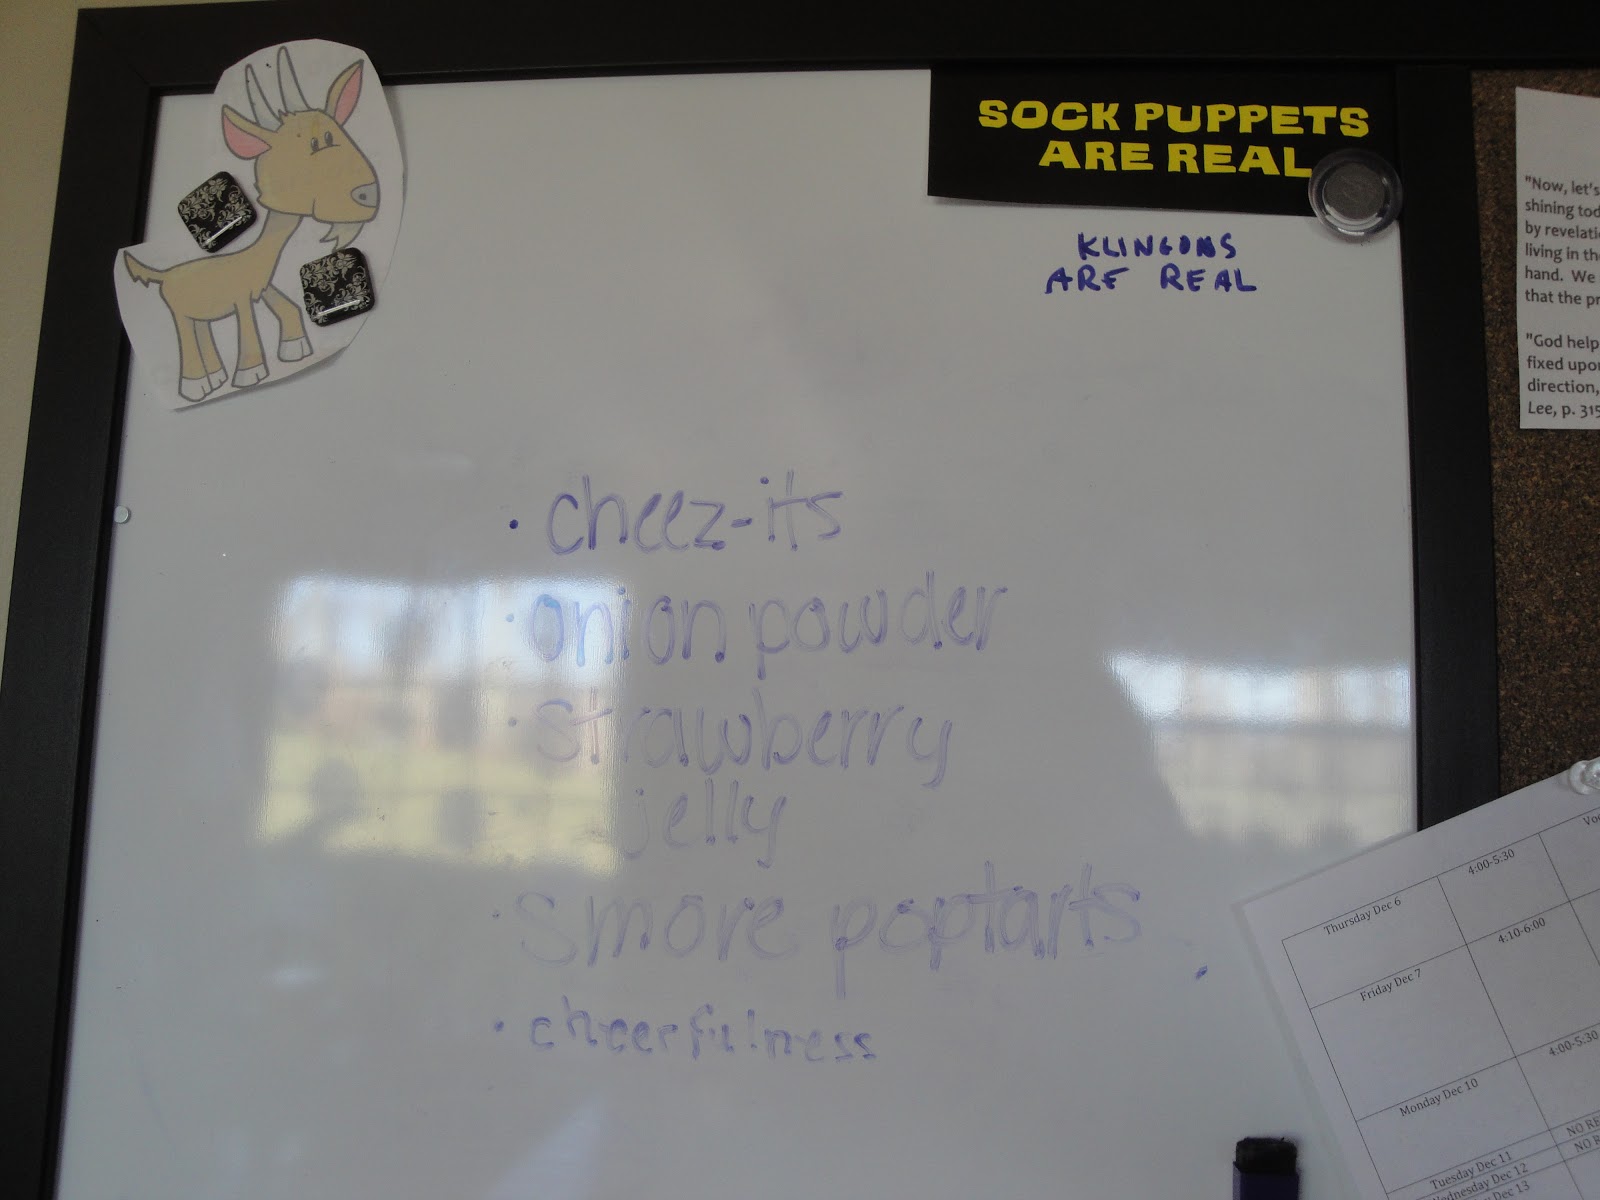 SOCK PUPPETS
ARE REAL
KLINGONS
ARE REAL
• cheez-its
• onion powder
• strawberry
jelly
• smore poptarts
• cheerfulness
"Now, let's
shining tod
by revelati
living in the
hand. We
that the pr
"God help
fixed upon
direction,
Lee, p. 315
Thursday Dec 6
4:00-5:30
Friday Dec 7
4:10-6:00
Monday Dec 10
4:00-5:30
Tuesday Dec 11
NO RE
Wednesday Dec 12
NO R
Dec 13